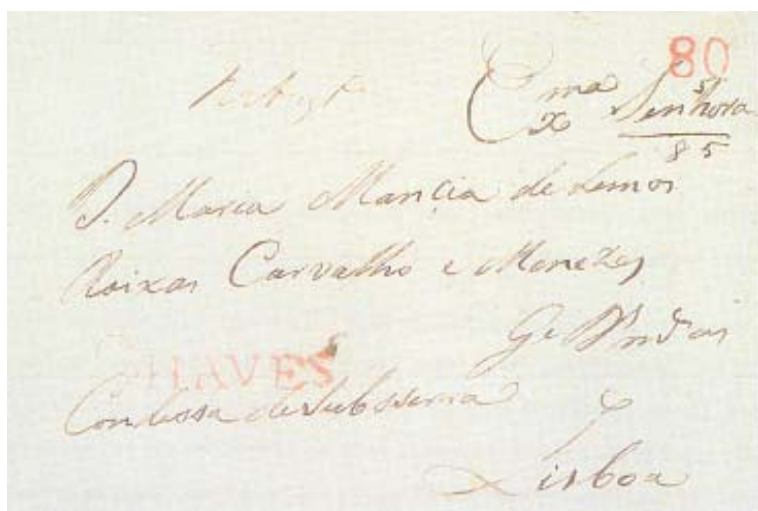 80
Exma Senhora
85
D. Maria Mancia de Lemos
Roixas Carvalho e Menezes
CHAVES
Condessa de Subsserra
Lisboa